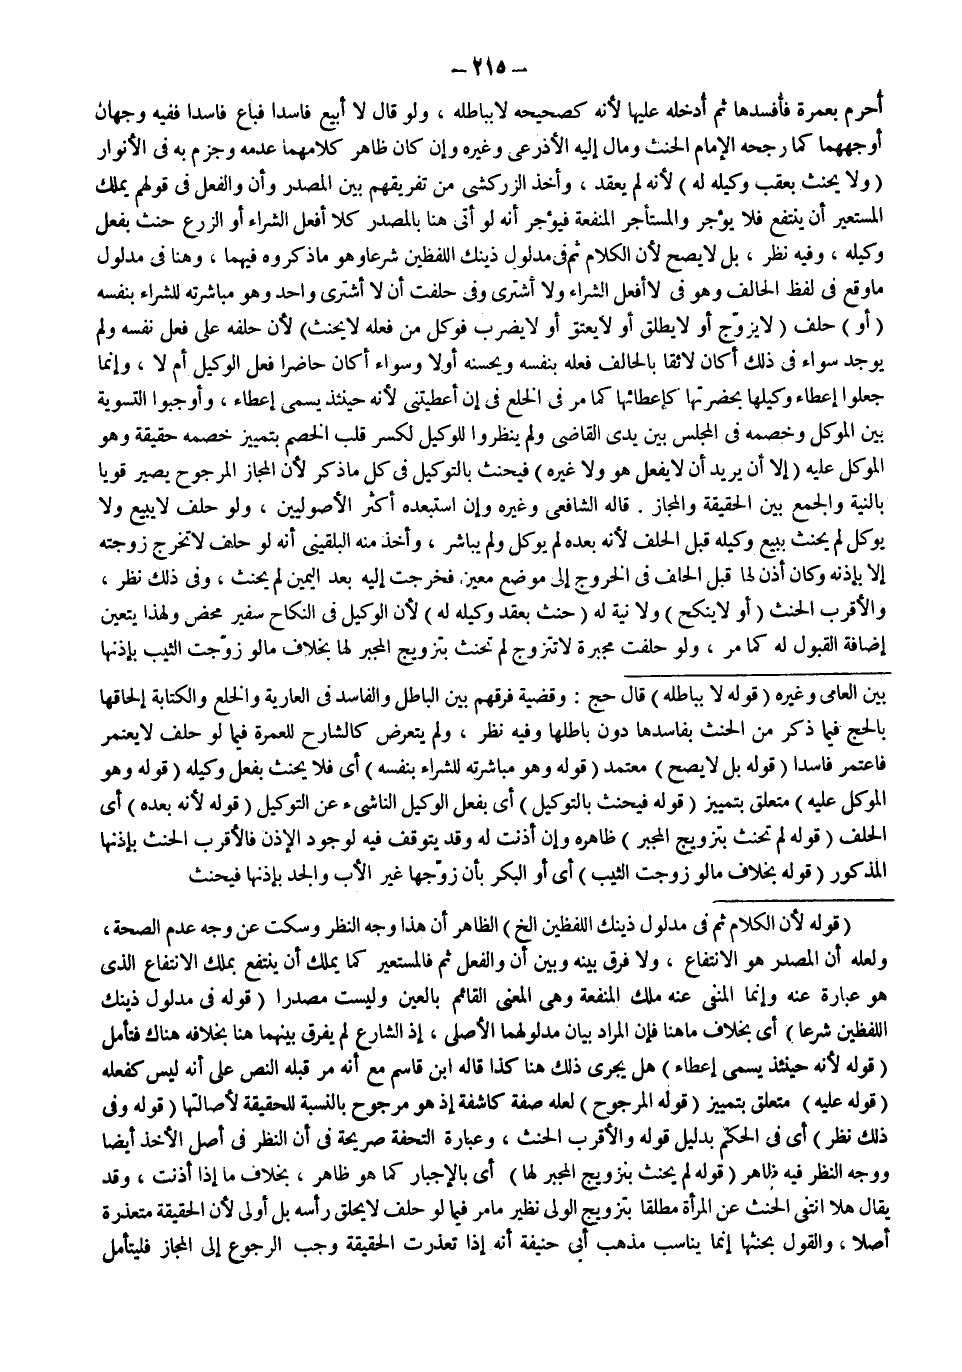 - ٢١٥ -
أحرم بعمرة فأفسدها ثم أدخله عليها لأنه كصحيحه لاباطله ، ولو قال لا أبيع فاسدا فباع فاسدا ففيه وجهان
أوجههما كما رجحه الإمام الحنث ومال إليه الأذرعى وغيره وإن كان ظاهر كلامهما عدمه وجزم به فى الأنوار
( ولا يحنث بعقب وكيله له ) لأنه لم يعقد ، وأخذ الزركشى من تفريقهم بين المصدر وأن والفعل فى قولهم يملك
المستعير أن ينتفع فلا يؤجر والمستأجر المنفعة فيؤجر أنه لو أتى هنا بالمصدر كلا أفعل الشراء أو الزرع حنث بفعل
وكيله ، وفيه نظر ، بل لايصح لأن الكلام ثم فى مدلول ذينك اللفظين شرعا وهو ماذكروه فيهما ، وهنا فى مدلول
ماوقع فى لفظ الحالف وهو فى لاأفعل الشراء ولا أشترى وفى حلفت أن لا أشترى واحد وهو مباشرته للشراء بنفسه
( أو ) حلف ( لايزوّج أو لايطلق أو لايعتق أو لايضرب فوكل من فعله لايحنث) لأن حلفه على فعل نفسه ولم
يوجد سواء فى ذلك أكان لائقا بالحالف فعله بنفسه ويحسنه أولا وسواء أكان حاضرا فعل الوكيل أم لا ، وإنما
جعلوا إعطاء وكيلها بحضرتها كإعطائها كما مر فى الخلع فى إن أعطيتنى لأنه حينئذ يسمى إعطاء ، وأوجبوا التسوية
بين الموكل وخصمه فى المجلس بين يدى القاضى ولم ينظروا للوكيل لكسر قلب الخصم بتمييز خصمه حقيقة وهو
الموكل عليه ( إلا أن يريد أن لايفعل هو ولا غيره ) فيحنث بالتوكيل فى كل ماذكر لأن المجاز المرجوح يصير قويا
بالنية والجمع بين الحقيقة والمجاز . قاله الشافعى وغيره وإن استبعده أكثر الأصوليين ، ولو حلف لايبيع ولا
يوكل لم يحنث ببيع وكيله قبل الحلف لأنه بعده لم يوكل ولم يباشر ، وأخذ منه البلقينى أنه لو حلف لاتخرج زوجته
إلا بإذنه وكان أذن لها قبل الحلف فى الخروج إلى موضع معين فخرجت إليه بعد اليمين لم يحنث ، وفى ذلك نظر ،
والأقرب الحنث ( أو لاينكح ) ولا نية له ( حنث بعقد وكيله له ) لأن الوكيل فى النكاح سفير محض ولهذا يتعين
إضافة القبول له كما مر ، ولو حلفت مجبرة لاتتزوج لم تحنث بتزويج المجبر لها بخلاف مالو زوّجت الثيب بإذنها
بين العامى وغيره ( قوله لا بباطله ) قال حج : وقضية فرقهم بين الباطل والفاسد فى العارية والخلع والكتابة إلحاقها
بالحج فيما ذكر من الحنث بفاسدها دون باطلها وفيه نظر ، ولم يتعرض كالشارح للعمرة فيما لو حلف لايعتمر
فاعتمر فاسدا ( قوله بل لايصح ) معتمد ( قوله وهو مباشرته للشراء بنفسه ) أى فلا يحنث بفعل وكيله ( قوله وهو
الموكل عليه ) متعلق بتمييز ( قوله فيحنث بالتوكيل ) أى بفعل الوكيل الناشىء عن التوكيل ( قوله لأنه بعده ) أى
الحلف ( قوله لم تحنث بتزويج المجبر ) ظاهره وإن أذنت له وقد يتوقف فيه لوجود الإذن فالأقرب الحنث بإذنها
المذكور ( قوله بخلاف مالو زوجت الثيب ) أى أو البكر بأن زوّجها غير الأب والجد بإذنها فيحنث
( قوله لأن الكلام ثم فى مدلول ذينك اللفظين الخ ) الظاهر أن هذا وجه النظر وسكت عن وجه عدم الصحة ،
ولعله أن المصدر هو الانتفاع ، ولا فرق بينه وبين أن والفعل ثم فالمستعير كما يملك أن ينتفع يملك الانتفاع الذى
هو عبارة عنه وإنما المنفى عنه ملك المنفعة وهى المعنى القائم بالعين وليست مصدرا ( قوله فى مدلول ذينك
اللفظين شرعا ) أى بخلاف ماهنا فإن المراد بيان مدلولهما الأصلى ، إذ الشارع لم يفرق بينهما هنا بخلافه هناك فتأمل
( قوله لأنه حينئذ يسمى إعطاء ) هل يجرى ذلك هنا كذا قاله ابن قاسم مع أنه مر قبله النص على أنه ليس كفعله
( قوله عليه ) متعلق بتمييز ( قوله المرجوح ) لعله صفة كاشفة إذ هو مرجوح بالنسبة للحقيقة لأصالتها ( قوله وفى
ذلك نظر ) أى فى الحكم بدليل قوله والأقرب الحنث ، وعبارة التحفة صريحة فى أن النظر فى أصل الأخذ أيضا
ووجه النظر فيه ظاهر ( قوله لم يحنث بتزويج المجبر لها ) أى بالإجبار كما هو ظاهر ، بخلاف ما إذا أذنت ، وقد
يقال هلا انتفى الحنث عن المرأة مطلقا بتزويج الولى نظير مامر فيما لو حلف لايحلق رأسه بل أولى لأن الحقيقة متعذرة
أصلا ، والقول بحنثها إنما يناسب مذهب أبى حنيفة أنه إذا تعذرت الحقيقة وجب الرجوع إلى المجاز فليتأمل